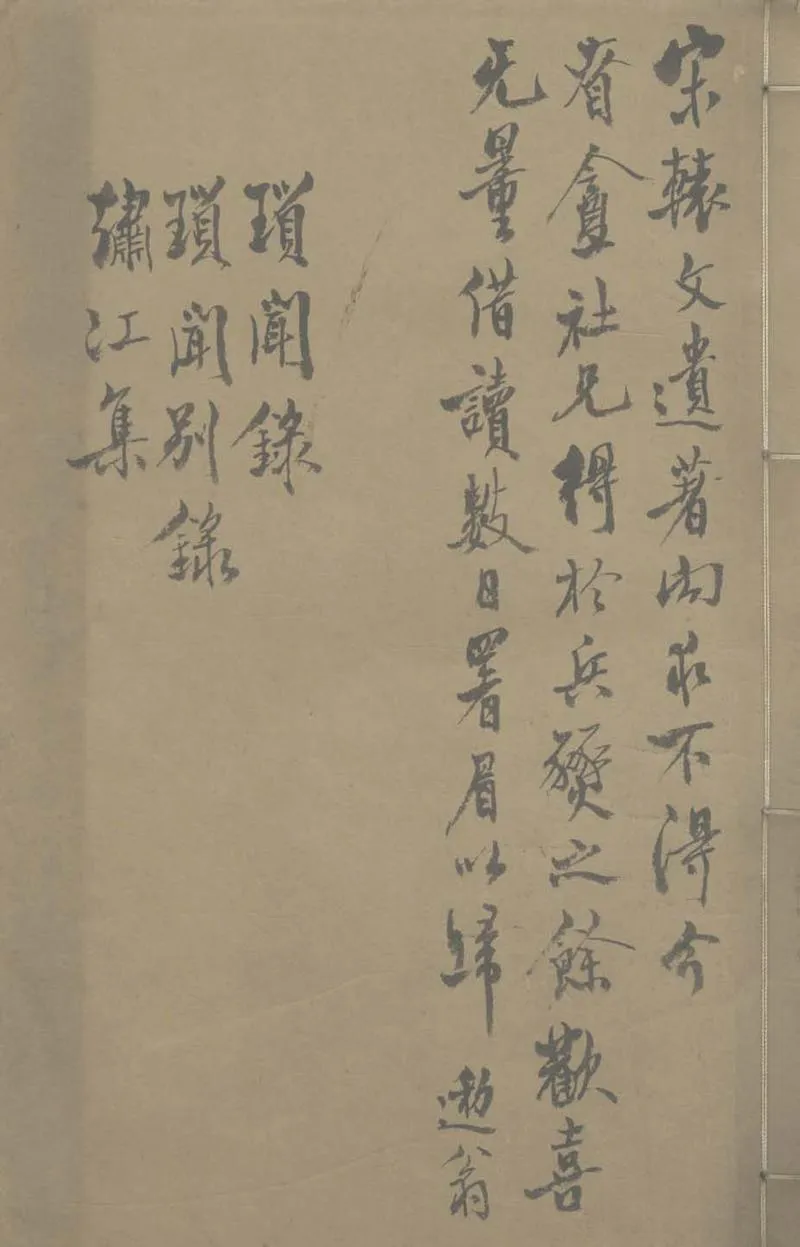 宋轅文遺著向求不得今
眘盦社兄得於兵燹之餘歡喜
无量借讀數日署眉以歸 遯翁
瑣聞錄
瑣聞別錄
江集